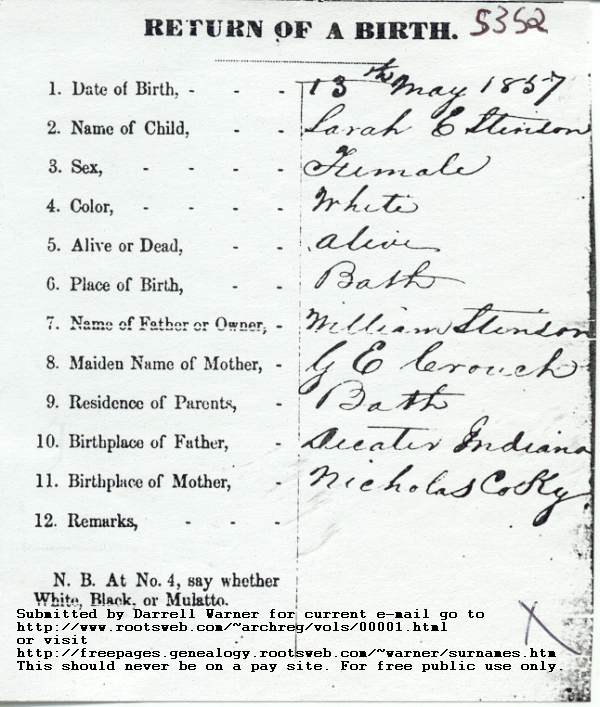 RETURN OF A BIRTH. 5352
1. Date of Birth, - - - 13th May 1857
2. Name of Child, - - Sarah E Stinson
3. Sex, - - - - Female
4. Color, - - - - White
5. Alive or Dead, - - alive
6. Place of Birth, - - Bath
7. Name of Father or Owner, - William Stinson
8. Maiden Name of Mother, - G E Crouch
9. Residence of Parents, - Bath
10. Birthplace of Father, - Decater Indiana
11. Birthplace of Mother, - Nicholas Co Ky
12. Remarks, - - -
N. B. At No. 4, say whether
White, Black, or Mulatto.
Submitted by Darrell Warner for current e-mail go to
http://www.rootsweb.com/~archreg/vols/00001.html
or visit
http://freepages.genealogy.rootsweb.com/~warner/surnames.htm
This should never be on a pay site. For free public use only.